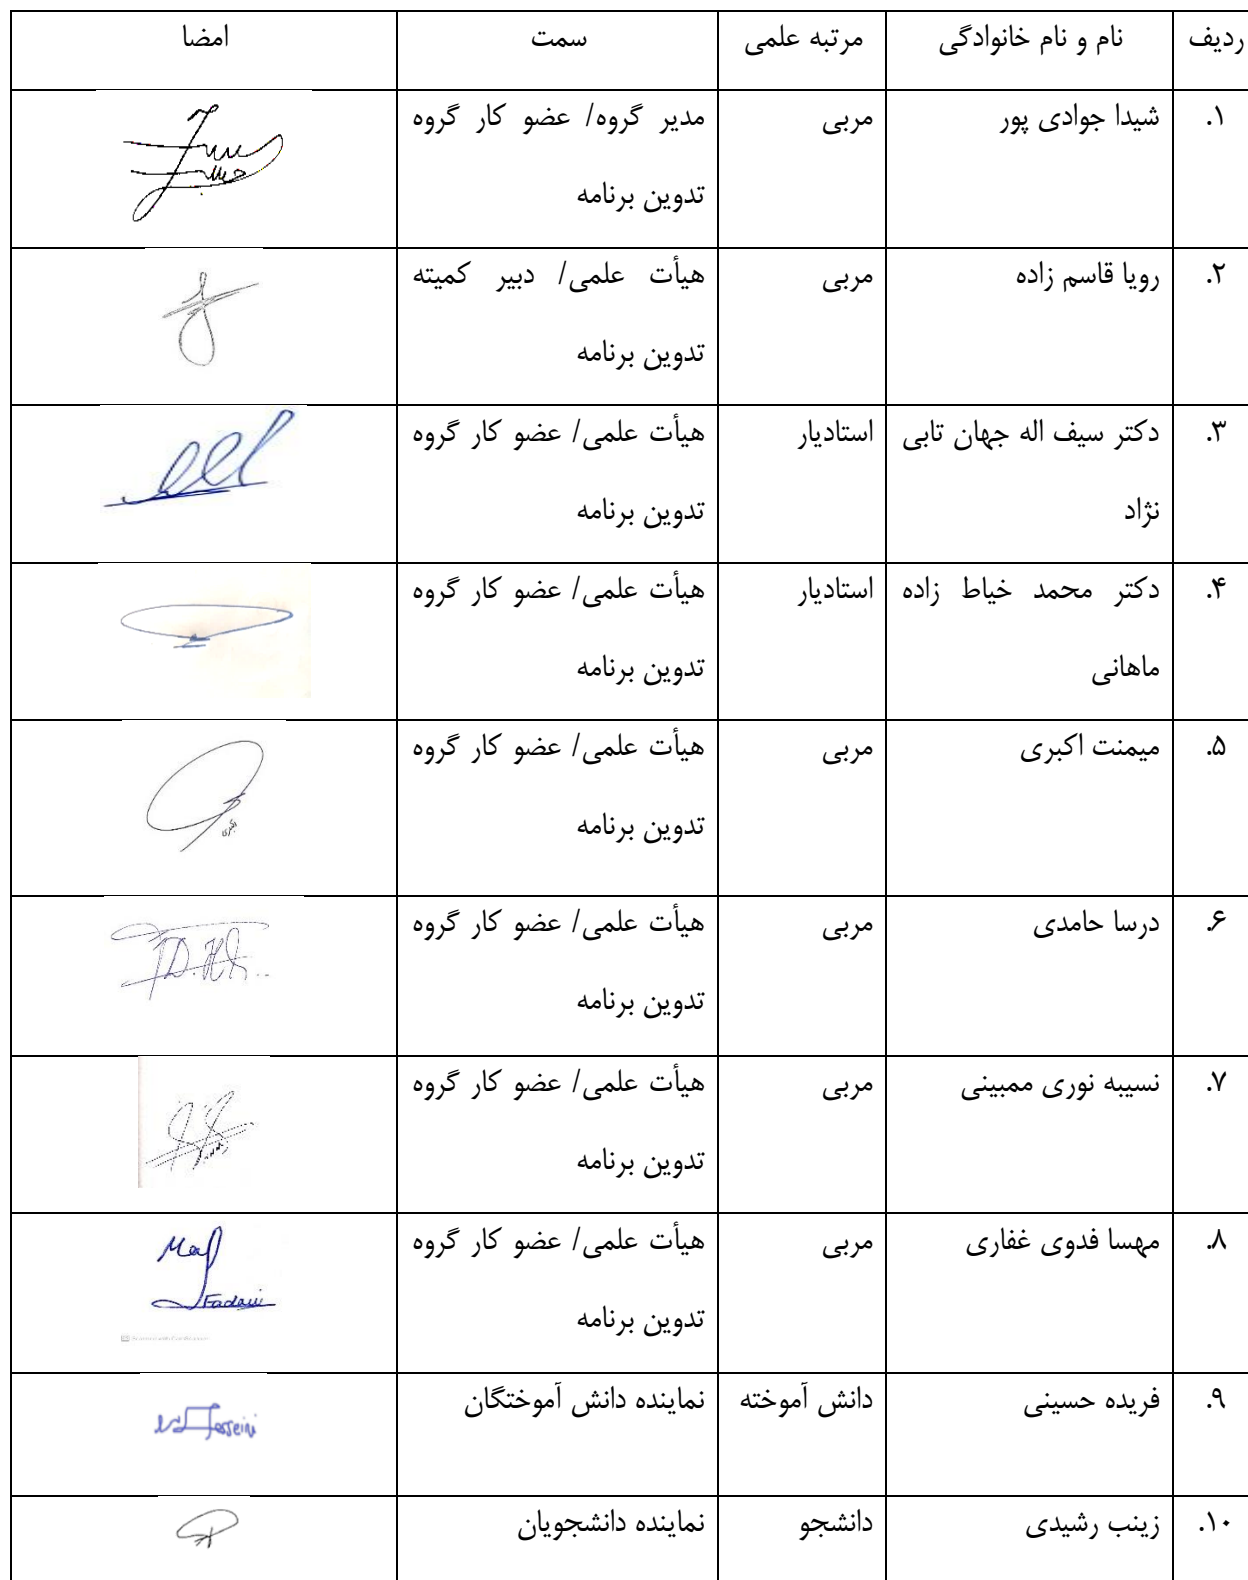 ردیف نام و نام خانوادگی مرتبه علمی سمت امضا
۱. شیدا جوادی پور مربی مدیر گروه/ عضو کار گروه
تدوین برنامه
۲. رویا قاسم زاده مربی هیأت علمی/ دبیر کمیته
تدوین برنامه
۳. دکتر سیف اله جهان تابی استادیار هیأت علمی/ عضو کار گروه
نژاد تدوین برنامه
۴. دکتر محمد خیاط زاده استادیار هیأت علمی/ عضو کار گروه
ماهانی تدوین برنامه
۵. میمنت اکبری مربی هیأت علمی/ عضو کار گروه
تدوین برنامه
۶. درسا حامدی مربی هیأت علمی/ عضو کار گروه
D.H
تدوین برنامه
۷. نسیبه نوری ممبینی مربی هیأت علمی/ عضو کار گروه
تدوین برنامه
۸. مهسا فدوی غفاری مربی هیأت علمی/ عضو کار گروه
Fadavi
تدوین برنامه
۹. فریده حسینی دانش آموخته نماینده دانش آموختگان
Hosseini
۱۰. زینب رشیدی دانشجو نماینده دانشجویان